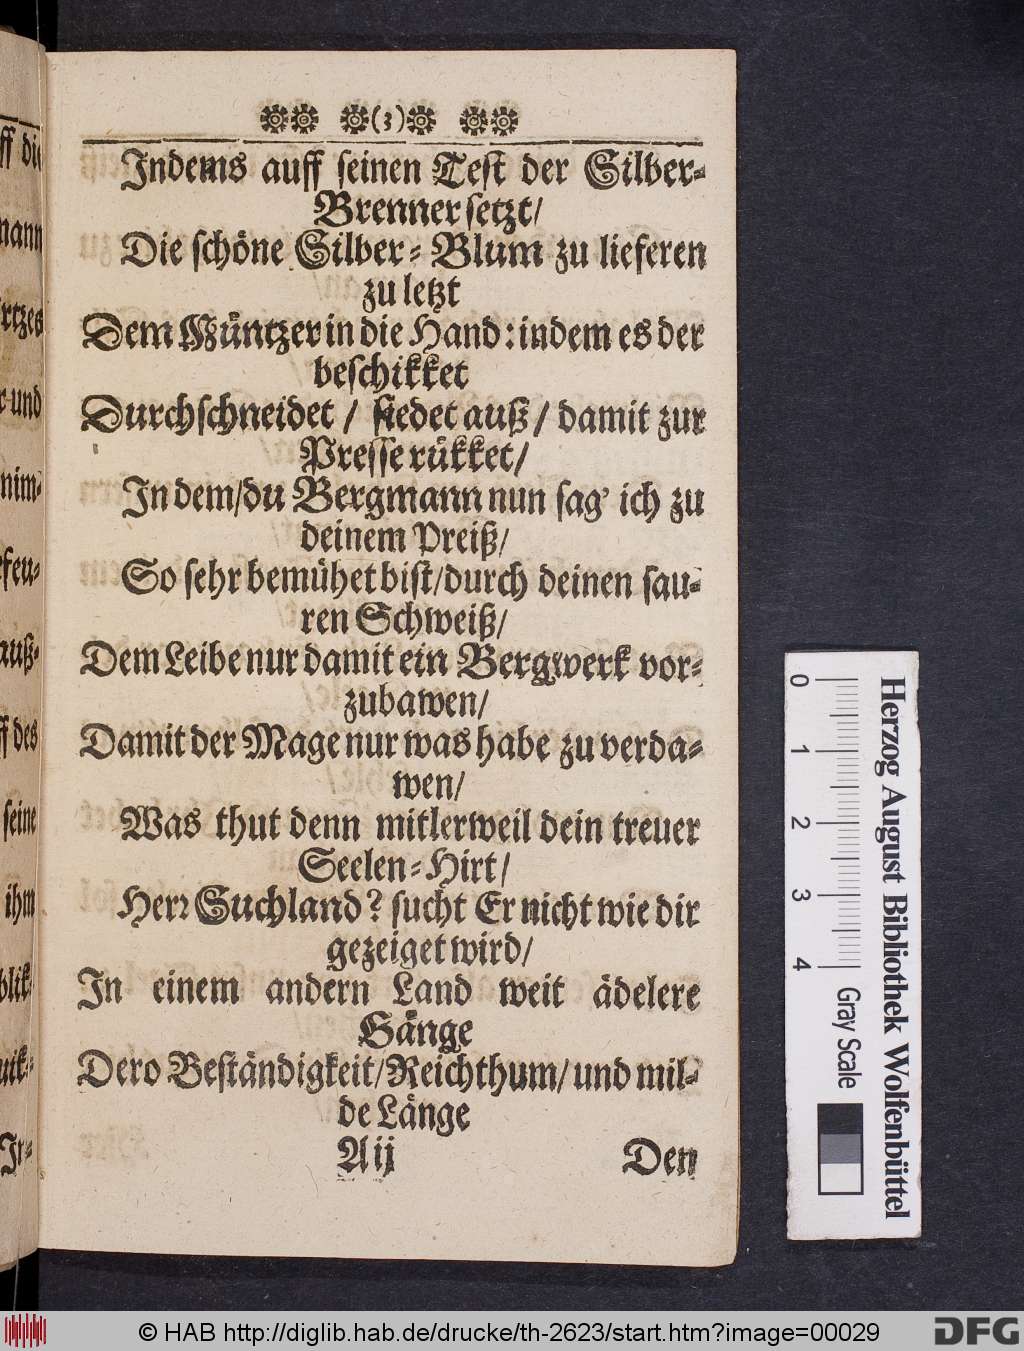 (3)
Indems auff seinen Test der Silber-
Brenner setzt/
Die schöne Silber-Blum zu lieferen
zu letzt
Dem Müntzer in die Hand: indem es der
beschikket
Durchschneidet / siedet auß / damit zur
Presse rükket/
In dem/du Bergmann nun sag' ich zu
deinem Preiß/
So sehr bemühet bist/durch deinen sau-
ren Schweiß/
Dem Leibe nur damit ein Bergwerk vor-
zubawen/
Damit der Mage nur was habe zu verda-
wen/
Was thut denn mitlerweil dein treuer
Seelen-Hirt/
Herr Suchland? sucht Er nicht wie dir
gezeiget wird/
In einem andern Land weit ädelere
Gänge
Dero Beständigkeit/Reichthum/und mil-
de Länge
A ij Den
ff die
mann
rtzes
r und
nim-
efeu-
auß-
ff des
seine
ihm
blik-
uik-
Jr-
0 1 2 3 4
Gray Scale
Herzog August Bibliothek Wolfenbüttel
© HAB http://diglib.hab.de/drucke/th-2623/start.htm?image=00029
DFG